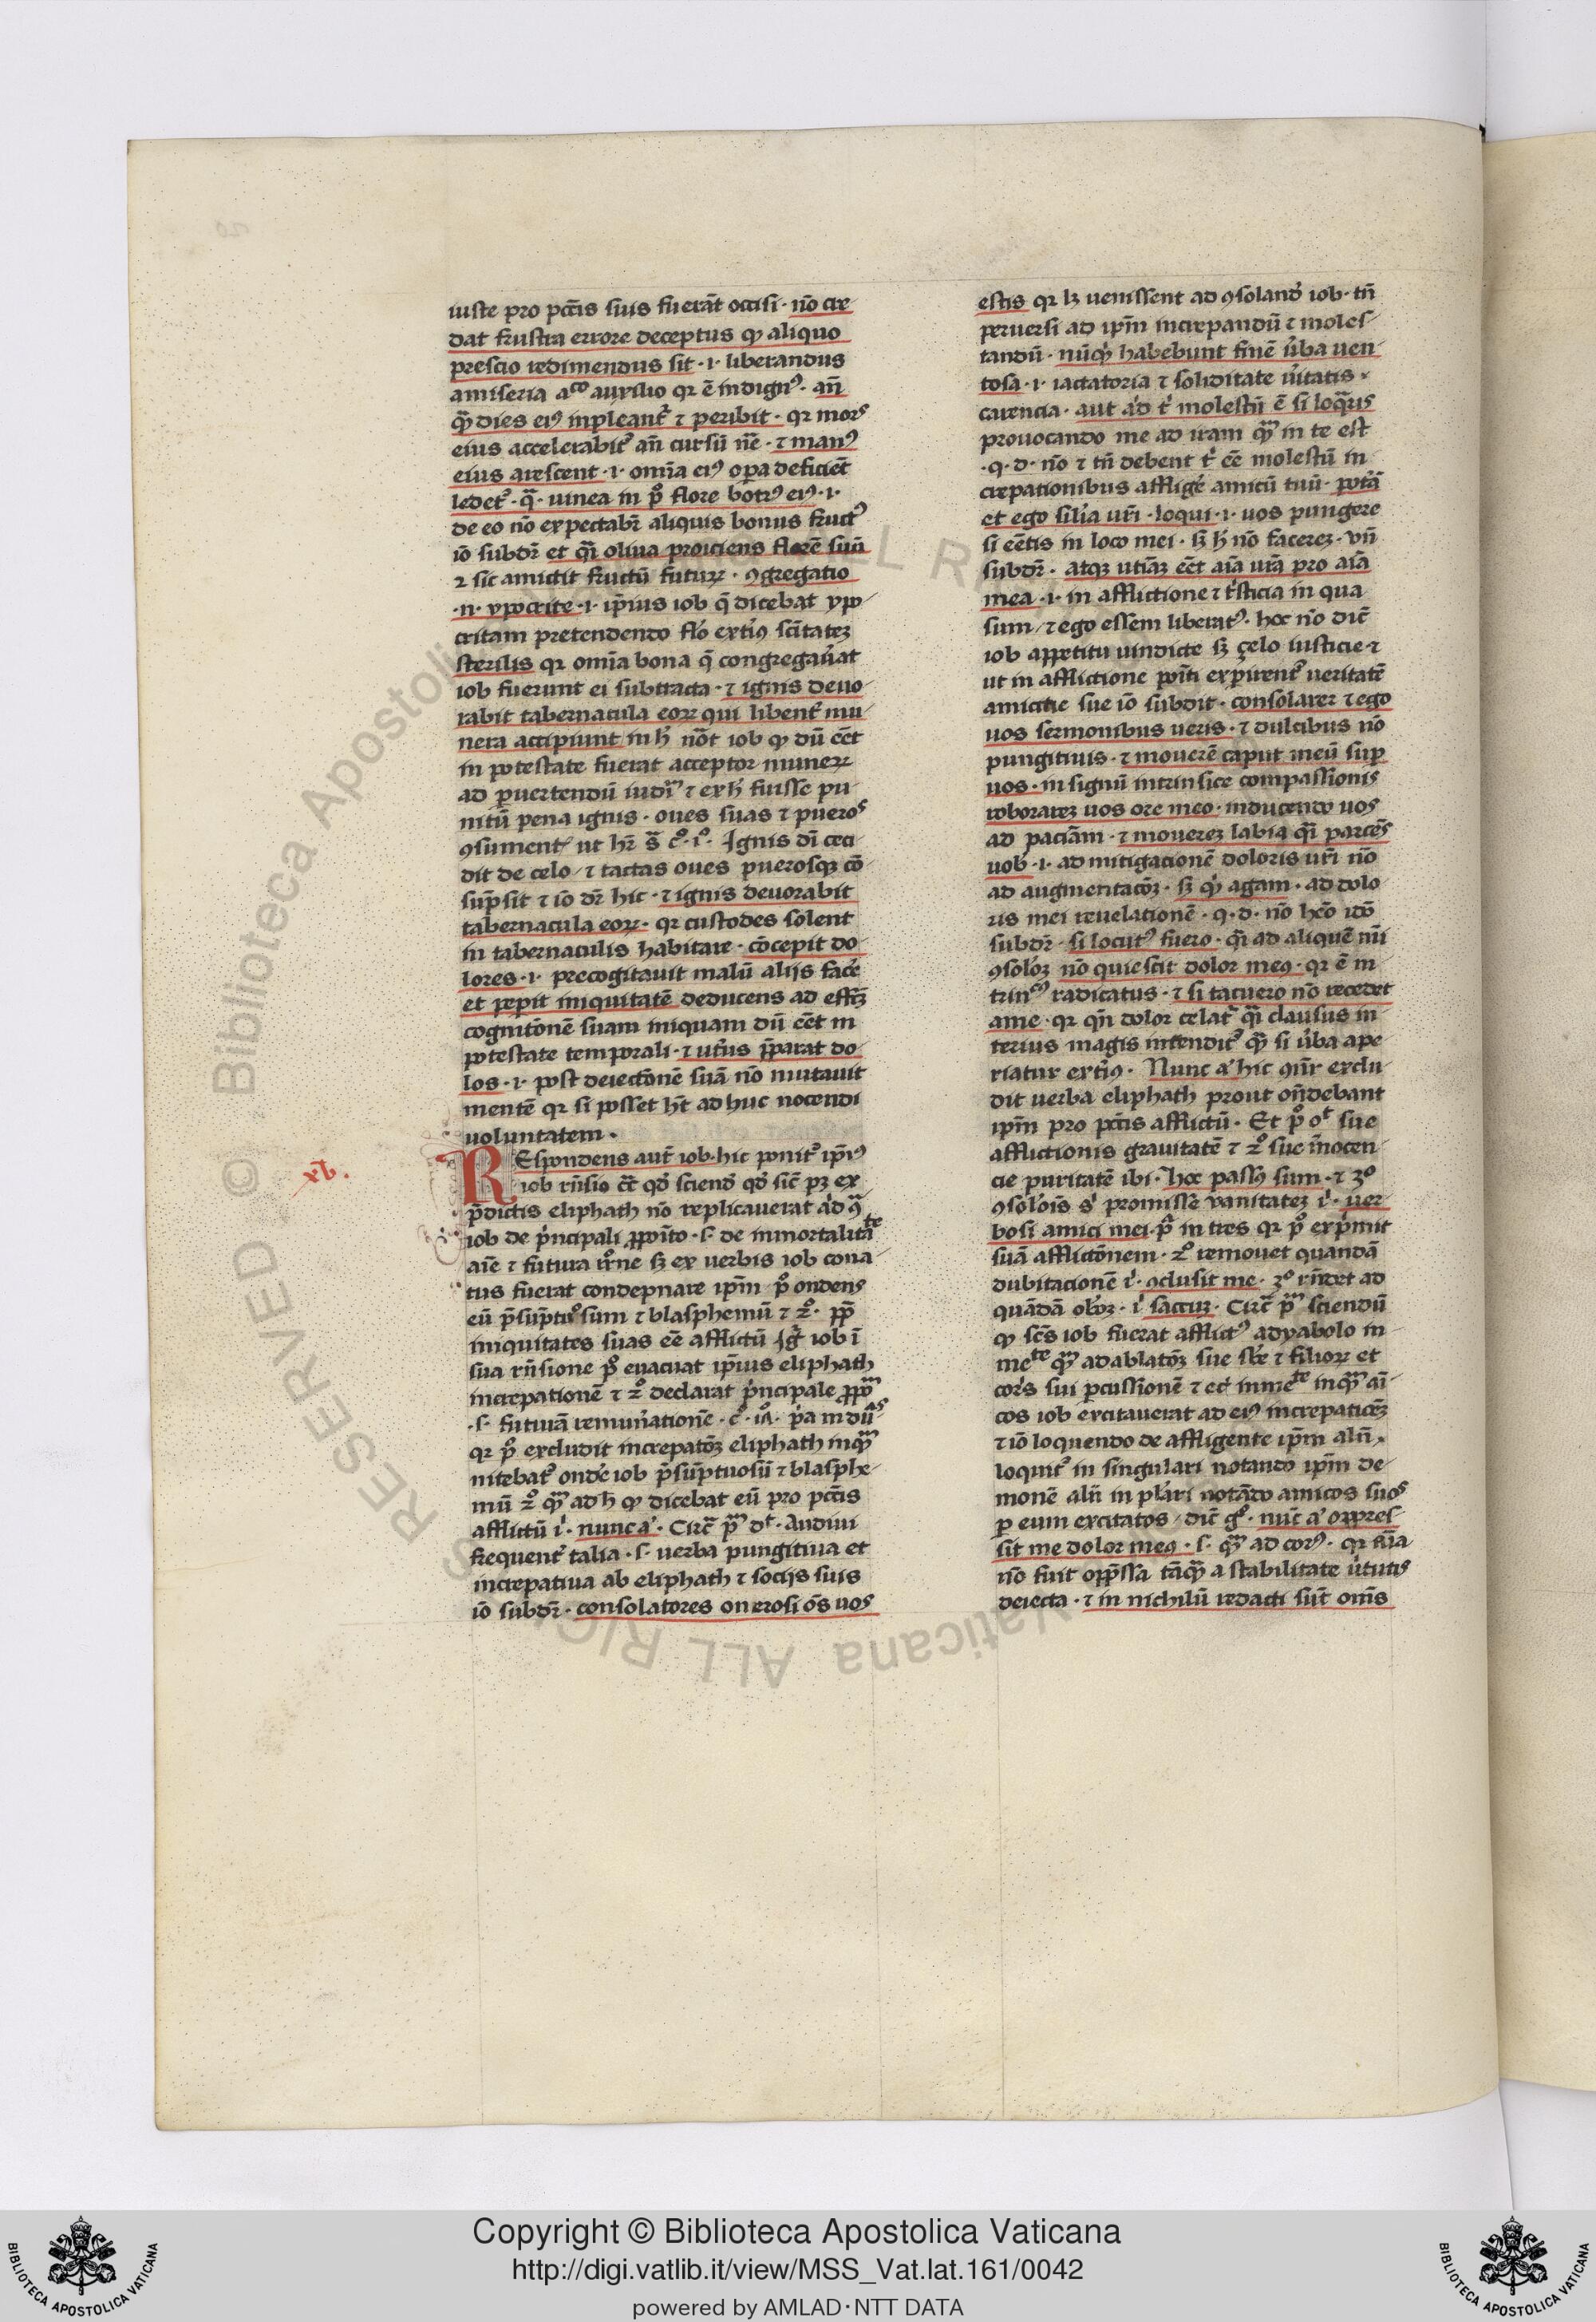 iuste pro pctĩs suis fuerãt occisi · nõ cre
dat frustra errore deceptus ꝙ aliquo
prescio redimendus sit · i · liberandus
amiseria aᶜᵒ auxilio qr ẽ indignꝰ · añ
dies eiꝰ inpleantᷣ ⁊ peribit · qr mors
eius accelerabitᷣ añ cursũ ñe · ⁊ manꝰ
eius arescent · i · omĩa eiꝰ opa deficiẽt
ledetᷣ · qᷓ · uinea in pº flore botrꝰ eiꝰ · i ·
de eo nõ expectabr̃ aliquis bonus fructꝰ
iõ subdr̃ et qᷓi oliua proiciens florẽ suũ
⁊ sic amictit fructũ futuꝝ · ꝯgregatio
· n · ypocrite · i · ip̃ius iob q̃ dicebat ypo
critam pretendendo exteriꝰ scĩtateʒ
sterilis qr omĩa bona q̃ congregau̾at
iob fuerunt ei subtracta · ⁊ ignis deuo
rabit tabernacula eoꝝ qui libentᷣ mu
nera accipiunt in h̾ nõt iob ꝙ dũ eẽt
in potestate fuerat acceptor muneꝝ
ad ꝑuertendũ iudiᷓ ⁊ exh̾ fuisse pu
nitũ pena ignis · oues suas ⁊ pueros
ꝯsumentᷣ ut hr̃ sᷓ cº · iº · Ignis dĩ ceci
dit de celo / ⁊ tactas oues puerosqʒ cõ
sũpsit ⁊ iõ dr̃ hic · ⁊ ignis deuorabit
tabernacula eoꝝ · qr custodes solent
in tabernaculis habitare · cõcepit do
lores · i · precogitauit malũ alijs face̾
et peꝑit iniquitatẽ deducens ad effc̃ʒ
cognitõnẽ suam iniquam dũ eẽt in
potestate temporali · ⁊ ut̾us p̃parat do
los · i · post deiectõnẽ suã nõ mutauit
mentẽ qr si posset hr̃t ad huc nocendi
uoluntatem ·
xv.
REspondens aut̃ iob · hic ponitᷣ ip̃iꝰ
iob rñsio cᷓ qᵒ sciendᵒ qᵒ sic̃ pʒ ex
p̃dictis eliphath nõ replicauerat ad qᷓ
iob de pͥncipali ꝓpoĩto · s · de inmortalitaᵗᵉ
aĩe ⁊ futura ur̃ne sʒ ex uerbis iob cona
tus fuerat condepnare ip̃m pº ondens
eũ p̃sũptuºsum ⁊ blasphemũ ⁊ 2º · ꝓp̃
iniquitates suas eẽ afflictũ Igᷣ iob ĩ
sua rñsione pº euacuat ip̃ius eliphath
increpationẽ ⁊ 2º declarat pͥncipale ꝓpoᵐ
· s · futurã remun̾ationẽ · cº · · pͥa in duᷓˢ
qr pº excludit increpatõʒ eliphath inqᷓᵐ
nitebatᷣ onde̾ iob p̃sũptuosũ ⁊ blasphe
mũ 2º qᷓᵐ ad h̾ ꝙ dicebat eũ pro pctĩs
afflictũ iͥ · nunc aͥ · Circᷓ pᵐ dᵗ · Audiui
frequentᷣ talia · s · uerba pungitiua et
increpatiua ab eliphath ⁊ socijs suis
iõ subdr̃ · consolatores onerosi õs uos
estis qr lʒ uenissent ad ꝯsoland̾ iob · tñ
peruersi ad ip̃m increpandũ ⁊ moles
tandũ · nũqͥ habebunt finẽ u̾ba uen
tosa · i · iactatoria ⁊ soliditate u̾itatis
carencia · aut aͥd tͥ molestũ ẽ si loqᷓris
prouocando me ad iram qᷓᵐ in te est
· q · d · nõ ⁊ tñ debent tͥ eẽ molestũ in
crepationibus afflige̾ amicũ tuũ · potᷓã
et ego silĩa ur̃i · loqui · i · uos pungere
si eẽtis in loco mei · sʒ h̾ nõ facereʒ · vñ
subdr̃ · atqʒ utinãʒ eẽt aĩa ur̃a pro aĩa
mea · i · in afflictione ⁊ tͥsticia in qua
sum / ⁊ ego essem liberatꝰ · hoc nõ dic̃
iob appetitu uindicte sʒ çelo iusticie ⁊
ut in afflictione poĩti expirentᷣ ueritatẽ
amicitie sue iõ subdit · consolarer ⁊ ego
uos sermonibus ueris · ⁊ dulcibus nõ
pungitiuis · ⁊ mouerẽ caput meũ suꝑ
uos · in signũ intrinsice compassionis
roborareʒ uos ore meo · inducendo uos
ad paciãm · ⁊ mouereʒ labia qᷓi parcẽs
uob · i · ad mitigacionẽ doloris ur̃i nõ
ad augmentacõʒ · sʒ qͥ agam · ad dolo
ris mei reuelationẽ · q · d · nõ heõ iõ
subdr̃ · si locutꝰ fuero · qᷓi ad aliquẽ m̃i
ꝯsolõʒ nõ quiescit dolor meꝰ · qr ẽ in
trinᶜᵒ radicatus · ⁊ si tacuero nõ recedet
ame · qr qñ dolor celatᷣ qᷓi clausus in
terius magis intenditᷣ qᷓᵐ si u̾ba ape
riatur exteriꝰ · Nunc aͥ hic ꝯñr exclu
dit uerba eliphath prout oñdebant
ip̃m pro pctĩs afflictũ · Et pº oᵗ sue
afflictionis grauitatẽ ⁊ 2º sue ĩnocen
cie puritatẽ ibi · hoc passꝰ sum · ⁊ 3º
ꝯsolõis sͥ promisse vanitateʒ iͥ · uer
bosi amici mei · pᷓ in tres qr pº expͥmit
suã afflictõnem · 2º remouet quandã
dubitacionẽ iͥ · ꝯclusit me · 3º rñdet ad
quãdã obõʒ · iͥ saccuʒ · Circᷓ pᵐ sciendũ
ꝙ scs̃ iob fuerat afflictꝰ adyabolo in
meᵗᵉ qᷓᵐ adablatõʒ sue sbẽ ⁊ filioꝝ et
cor̃is sui ꝑcussionẽ ⁊ ecͥ inmeᵗᵉ inqᷓᵐ aĩ
cos iob excitauerat ad eiꝰ increpaticõʒ
⁊ iõ loquendo de affligente ip̃m alũ
loquitᷣ in singulari notando ip̃m de
monẽ alũ in plãri notãdo amicos suos
ꝑ eum excitatos / dic̃ gº · nũc aͥ oppres
sit me dolor meꝰ · s · qᷓᵐ ad corꝰ · qr aĩa
nõ fuit opp̃ssa tãqᷓᵐ a stabilitate u̾tutis
deiecta · ⁊ in nichilũ redacti sũt om̃s
Copyright © Biblioteca Apostolica Vaticana
http://digi.vatlib.it/view/MSS_Vat.lat.161/0042
powered by AMLAD·NTT DATA
BIBLIOTECA APOSTOLICA VATICANA
BIBLIOTECA APOSTOLICA VATICANA
© Biblioteca Apostolica Vaticana ALL RIGHTS RESERVED